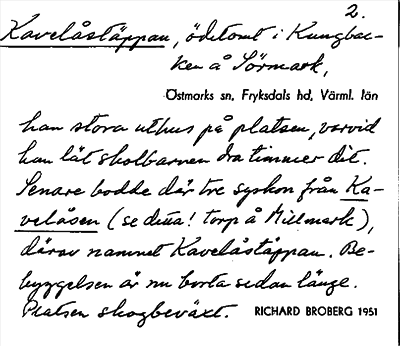 2.
Kavelåståppan, ödetomt i Kungbac-
ken å Sörmark,
Östmarks sn, Fryksdals hd, Värml. län
han stora uthus på platsen, varvid
han lät skolbarnen dra timmer dit.
Senare bodde där tre syskon från Ka-
velåsen (se dessa! torp å Millmark),
därav namnet Kavelåståppan. Be-
byggelsen är nu borta sedan länge.
Platsen skogbeväxt. RICHARD BROBERG 1951